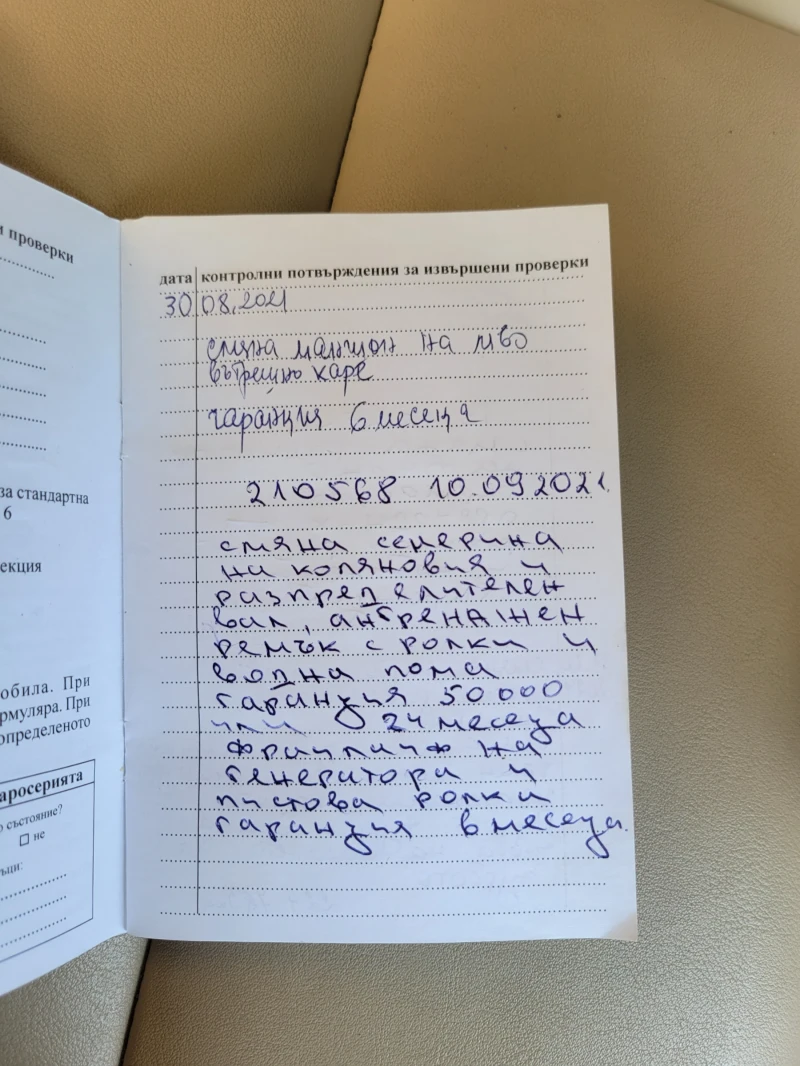 и проверки
за стандартна
6
екция
обила. При
рмуляра. При
определеното
аросерията
о състояние?
не
ъци:
дата контролни потвърждения за извършени проверки
30.08.2021
смяна маншон на мво
вътрешно каре
гаранция 6 месеца
210568 10.09.2021.
смяна семерина
на коляновия и
разпределителен
вал, ангренажен
ремък с ролки и
водна помa
гаранция 50000
или 24 месеца
на
генератора и
пистова ролки
гаранция 6 месеца.